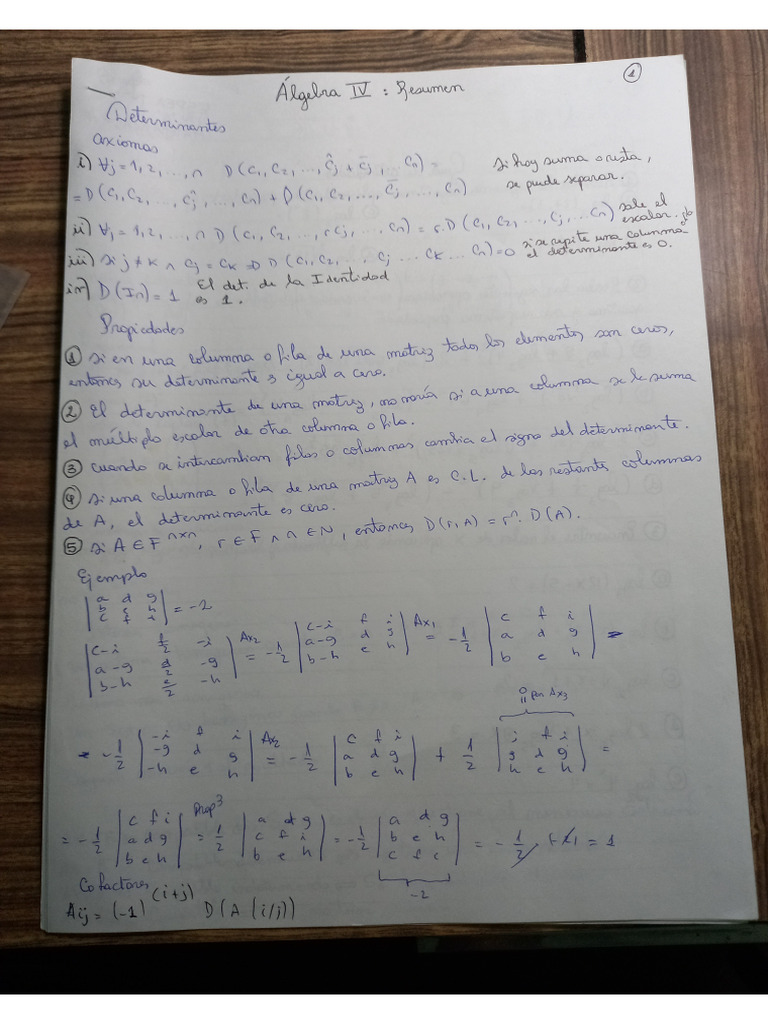 ①
Álgebra IV : Resumen
Determinantes
axiomas
i) ∀j = 1, 2, ..., n D(c₁, c₂, ..., ĉj + c̄j, ... cn) = si hay suma o resta,
= D(c₁, c₂, ..., ĉj, ..., cn) + D(c₁, c₂, ..., c̄j, ..., cn) se puede separar.
ii) ∀j = 1, 2, ..., n D(c₁, c₂, ..., rcj, ..., cn) = r.D(c₁, c₂, ..., cj, ... cn) sale el escalar.
iii) si j ≠ k ∧ cj = ck ⇒ D(c₁, c₂, ... cj ... ck ... cn) = 0 si se repite una columna el determinante es 0.
iv) D(In) = 1 El det. de la Identidad es 1.
Propiedades
① Si en una columna o fila de una matriz todos los elementos son ceros,
entonces su determinante es igual a cero.
② El determinante de una matriz, no varía si a una columna se le suma
el múltiplo escalar de otra columna o fila.
③ cuando se intercambian filas o columnas cambia el signo del determinante.
④ Si una columna o fila de una matriz A es C.L. de las restante columnas
de A, el determinante es cero.
⑤ Si A ∈ F^nxn, r ∈ F ∧ n ∈ N, entonces D(r, A) = r^n. D(A).
Ejemplo
|a d g; b e h; c f i| = -2
|c-i f/2 -i; a-g d/2 -g; b-h e/2 -h| Ax₂ = -1/2 |c-i f i; a-g d g; b-h e h| Ax₁ = -1/2 |c f i; a d g; b e h| -
0 = por Ax₃
- -1/2 |-i f i; -g d g; -h e h| Ax₂ = -1/2 |c f i; a d g; b e h| + 1/2 |i f i; g d g; h e h| =
= -1/2 |c f i; a d g; b e h| Prop³ = 1/2 |a d g; c f i; b e h| = -1/2 |a d g; b e h; c f i| = -1/2 . = 1
-2
Cofactores
Aij = (-1)^(i+j) D(A (i/j))